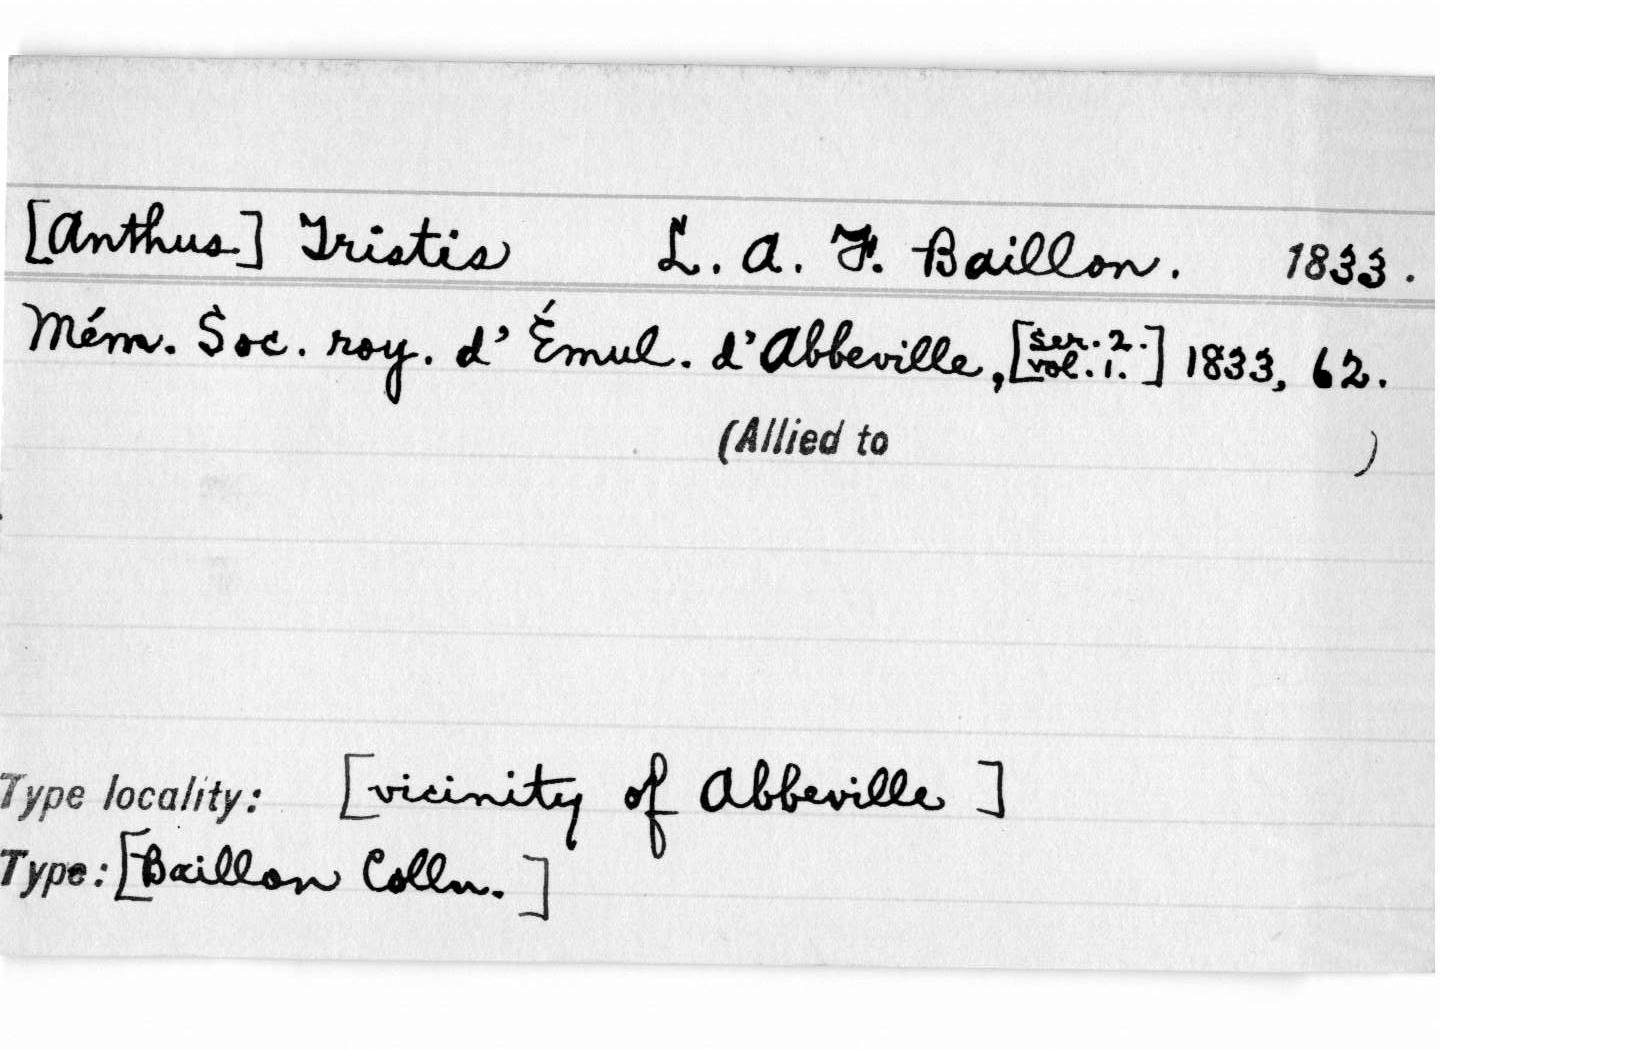 [Anthus] Tristis L. A. F. Baillon. 1833.
Mém. Soc. roy. d'Émul. d'Abbeville, [ser. 2. vol. 1.] 1833, 62.
(Allied to )
Type locality: [vicinity of Abbeville]
Type: [Baillon Colln.]